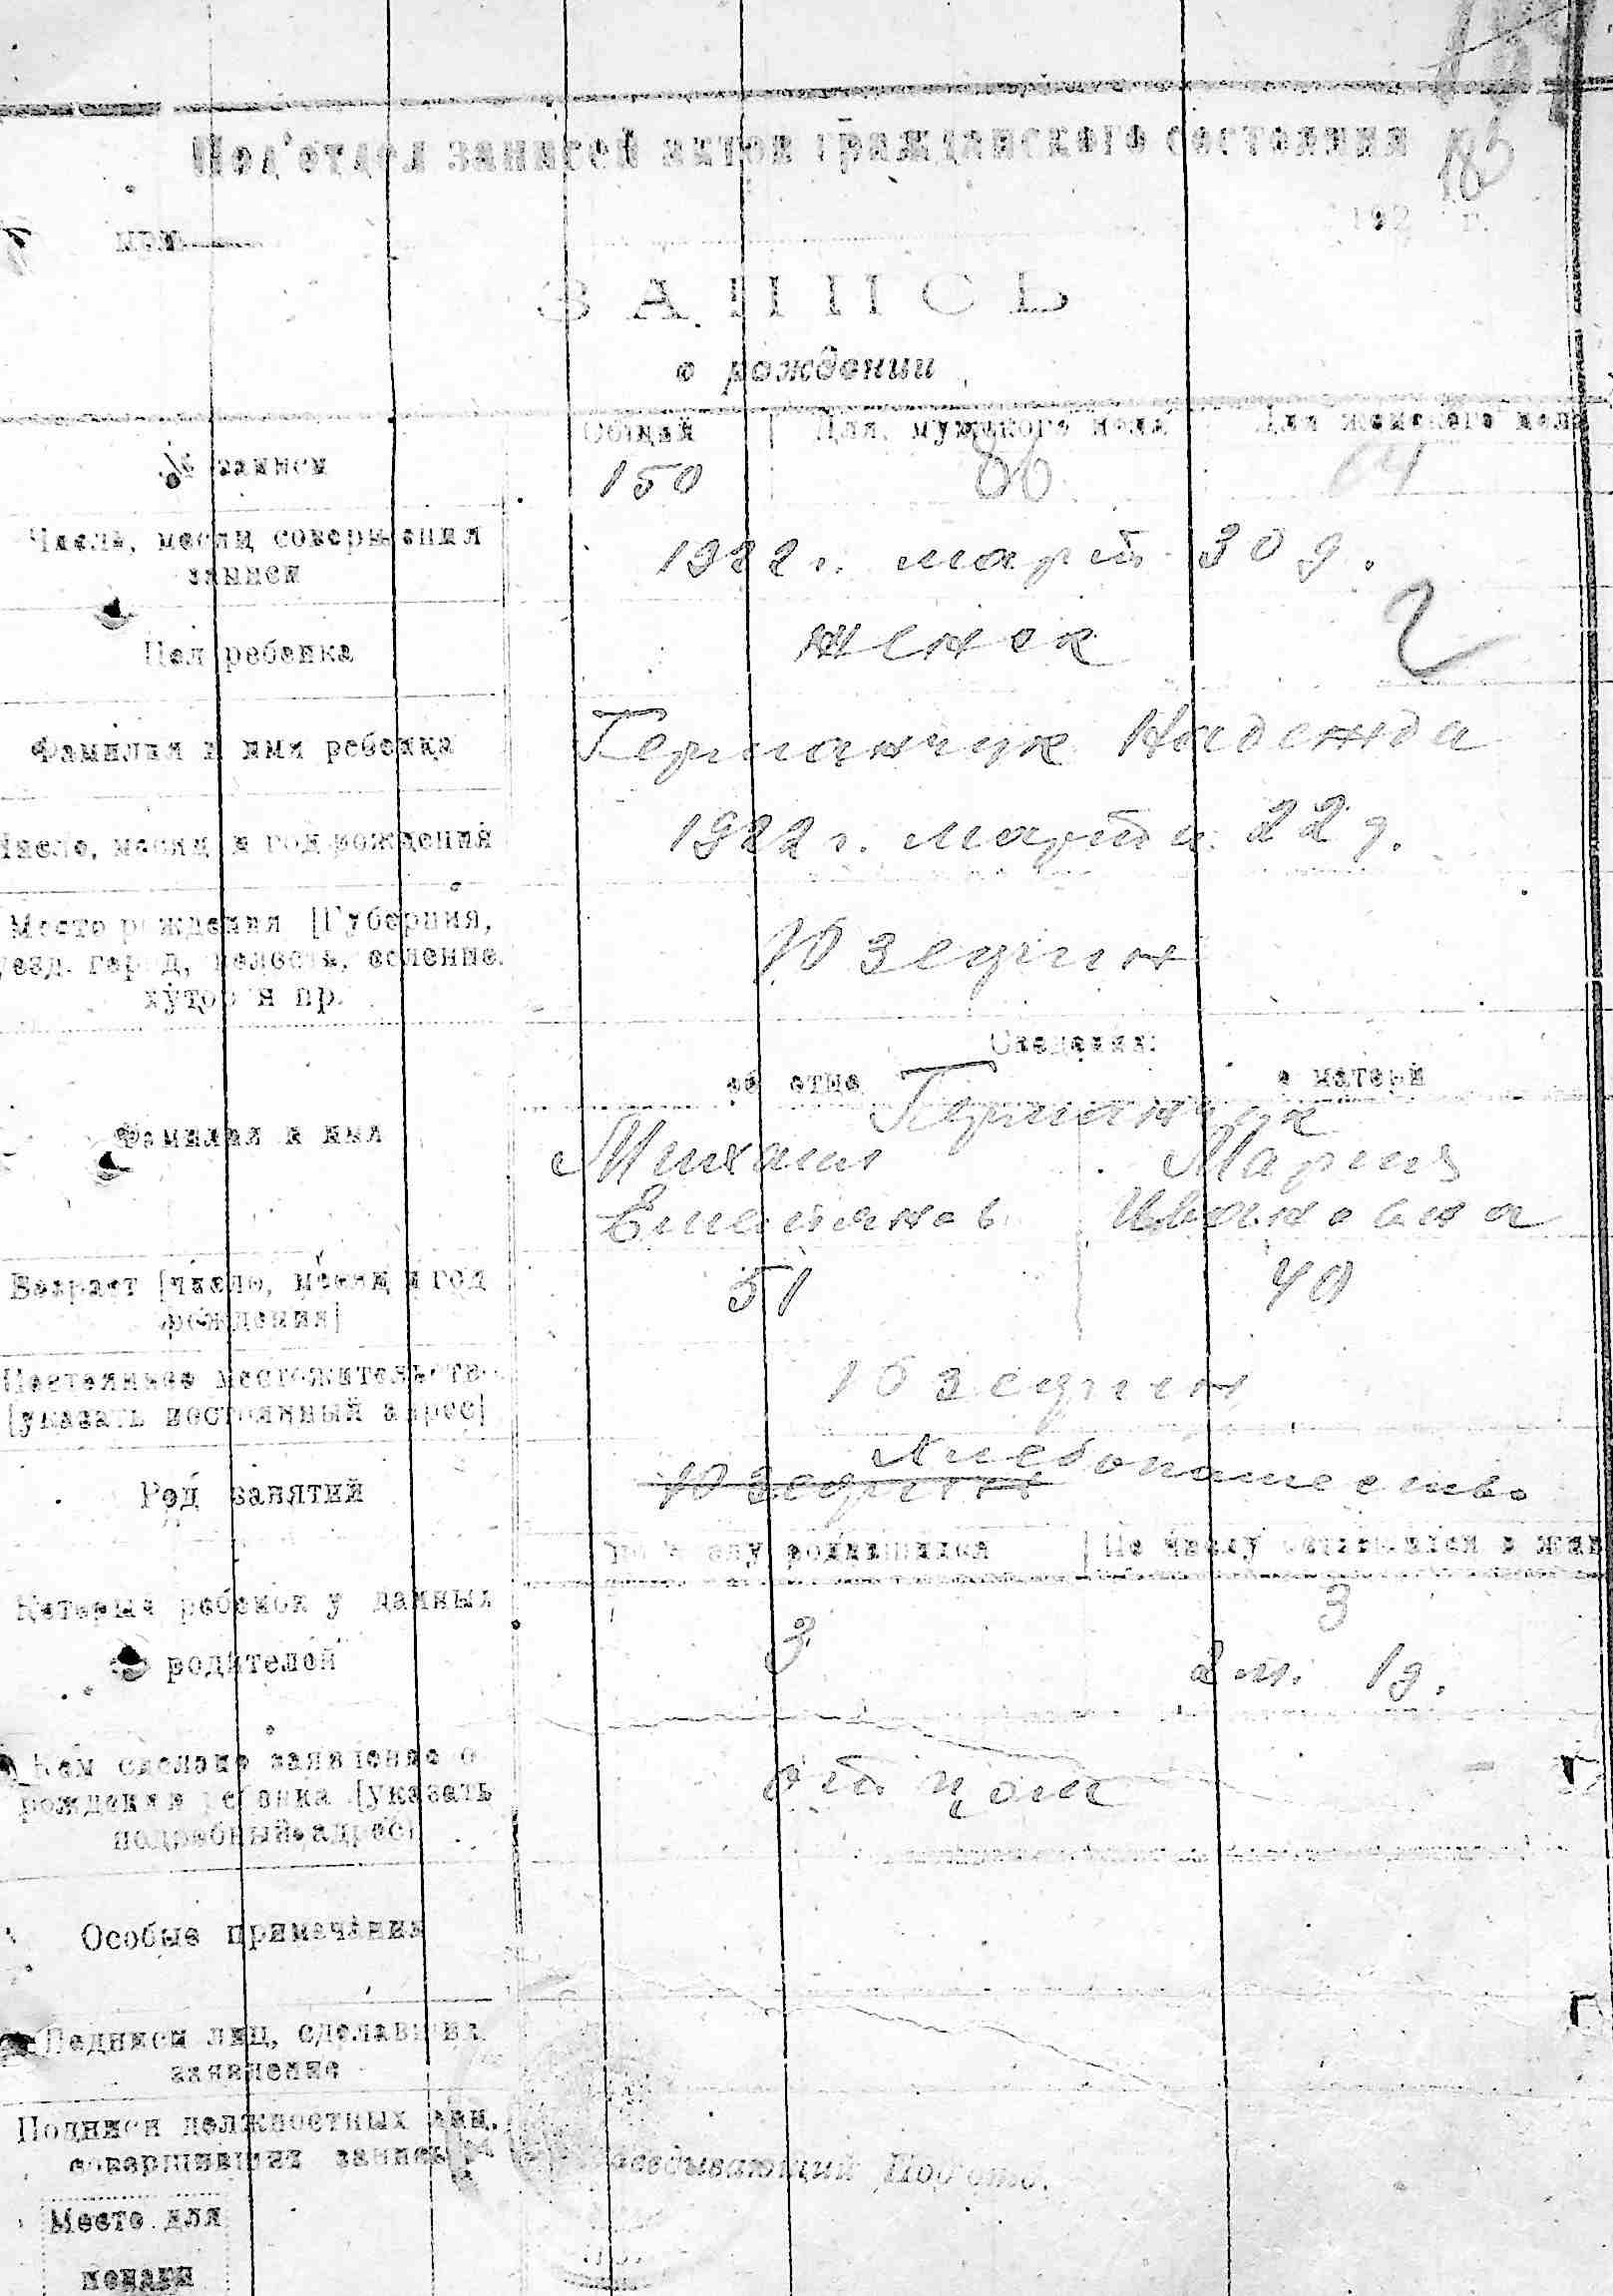 Под'отдел записей актов гражданского состояния
183
192 г.
ЗАПИСЬ
о рождении
Общий Для мужского пола Для женского пола
№ записи 150 86 64
Число, месяц совершения 1922 г. март 30 д.
записи
Пол ребенка женск
2
Фамилия и имя ребенка Германчук Надежда
Число, месяц и год рождения 1922 г. марта 22 д.
Место рождения [Губерния,
уезд, город, волость, селение,
хутор и пр. Юзефин
Сведения:
об отце о матери
Германчук
Фамилия и имя Михаил Мария
Емельянов Ивановна
Возраст [число, месяц и год 51 40
рождения]
Постоянное местожительство Юзефин
[указать постоянный адрес]
Хлебопашество
Род занятий Юзефин
По числу родившихся По числу оставшихся в жив
Который ребенок у данных 3 3
родителей 2 м. 1 д.
Кем сделано заявление о
рождении ребенка [указать отцом
подробный адрес]
Особые примечания
Подписи лиц, сделавших
заявление
Подписи должностных лиц,
совершивших запись Заведывающий Под'отд.
Место для
печати